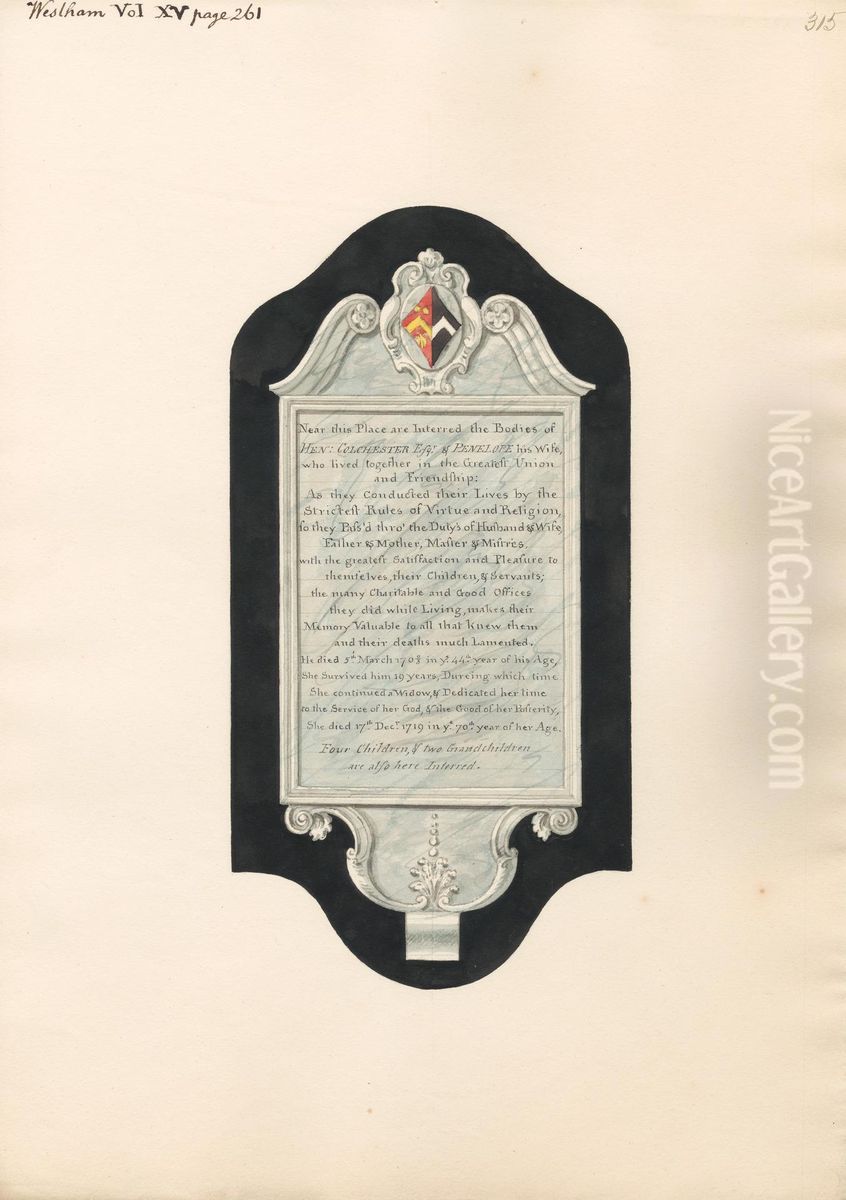 Westham Vol XV page 261
315
Near this Place are Interred the Bodies of
HEN: COLCHESTER Esqr. & PENELOPE his Wife,
who lived together in the Greatest Union
and Friendship:
As they Conducted their Lives by the
Strictest Rules of Virtue and Religion,
so they Pass'd thro' the Duty's of Husband & Wife
Father & Mother, Master & Mistres,
with the greatest Satisfaction and Pleasure to
themselves, their Children, & Servants;
the many Charitable and Good Offices
they did while Living, makes their
Memory Valuable to all that knew them
and their deaths much Lamented.
He died 5th March in ye. 44th year of his Age,
She Survived him 19 years, Dureing which time
She continued a Widow, & Dedicated her time
to the Service of her God, & the Good of her Posterity,
She died 17th Decr. 1719 in ye. 70th year of her Age.
Four Children, & two Grandchildren
are also here Interred.
NiceArtGallery.com